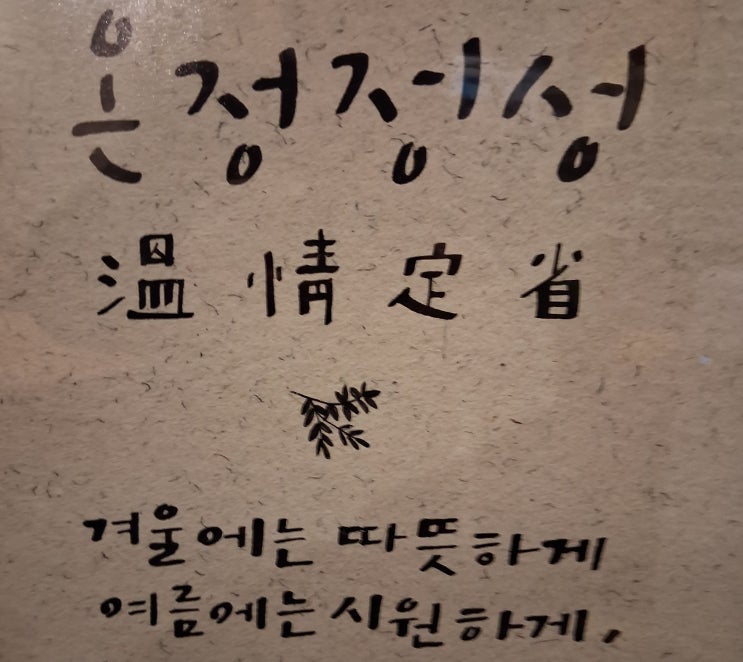 온정정성
溫情定省
겨울에는 따뜻하게
여름에는 시원하게,